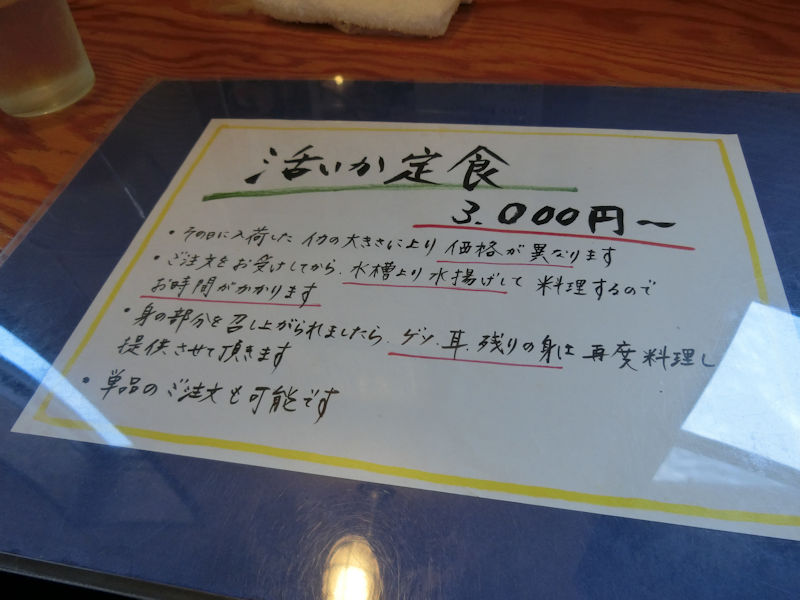 活いか定食
3.000円〜
・その日に入荷した イカの大きさにより 価格が異なります
・ご注文をお受けしてから、水槽より水揚げして 料理するので
お時間がかかります
・身の部分を召し上がられましたら、ゲソ、耳、残りの身は 再度料理し
提供させて頂きます
・単品のご注文も可能です